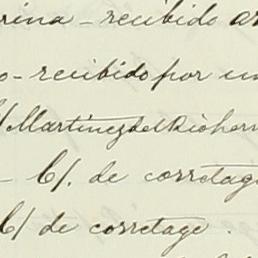 rina - recibido
o - recibido por un
Martinez del Rio herm
- C/. de corretag
C/ de corretage.